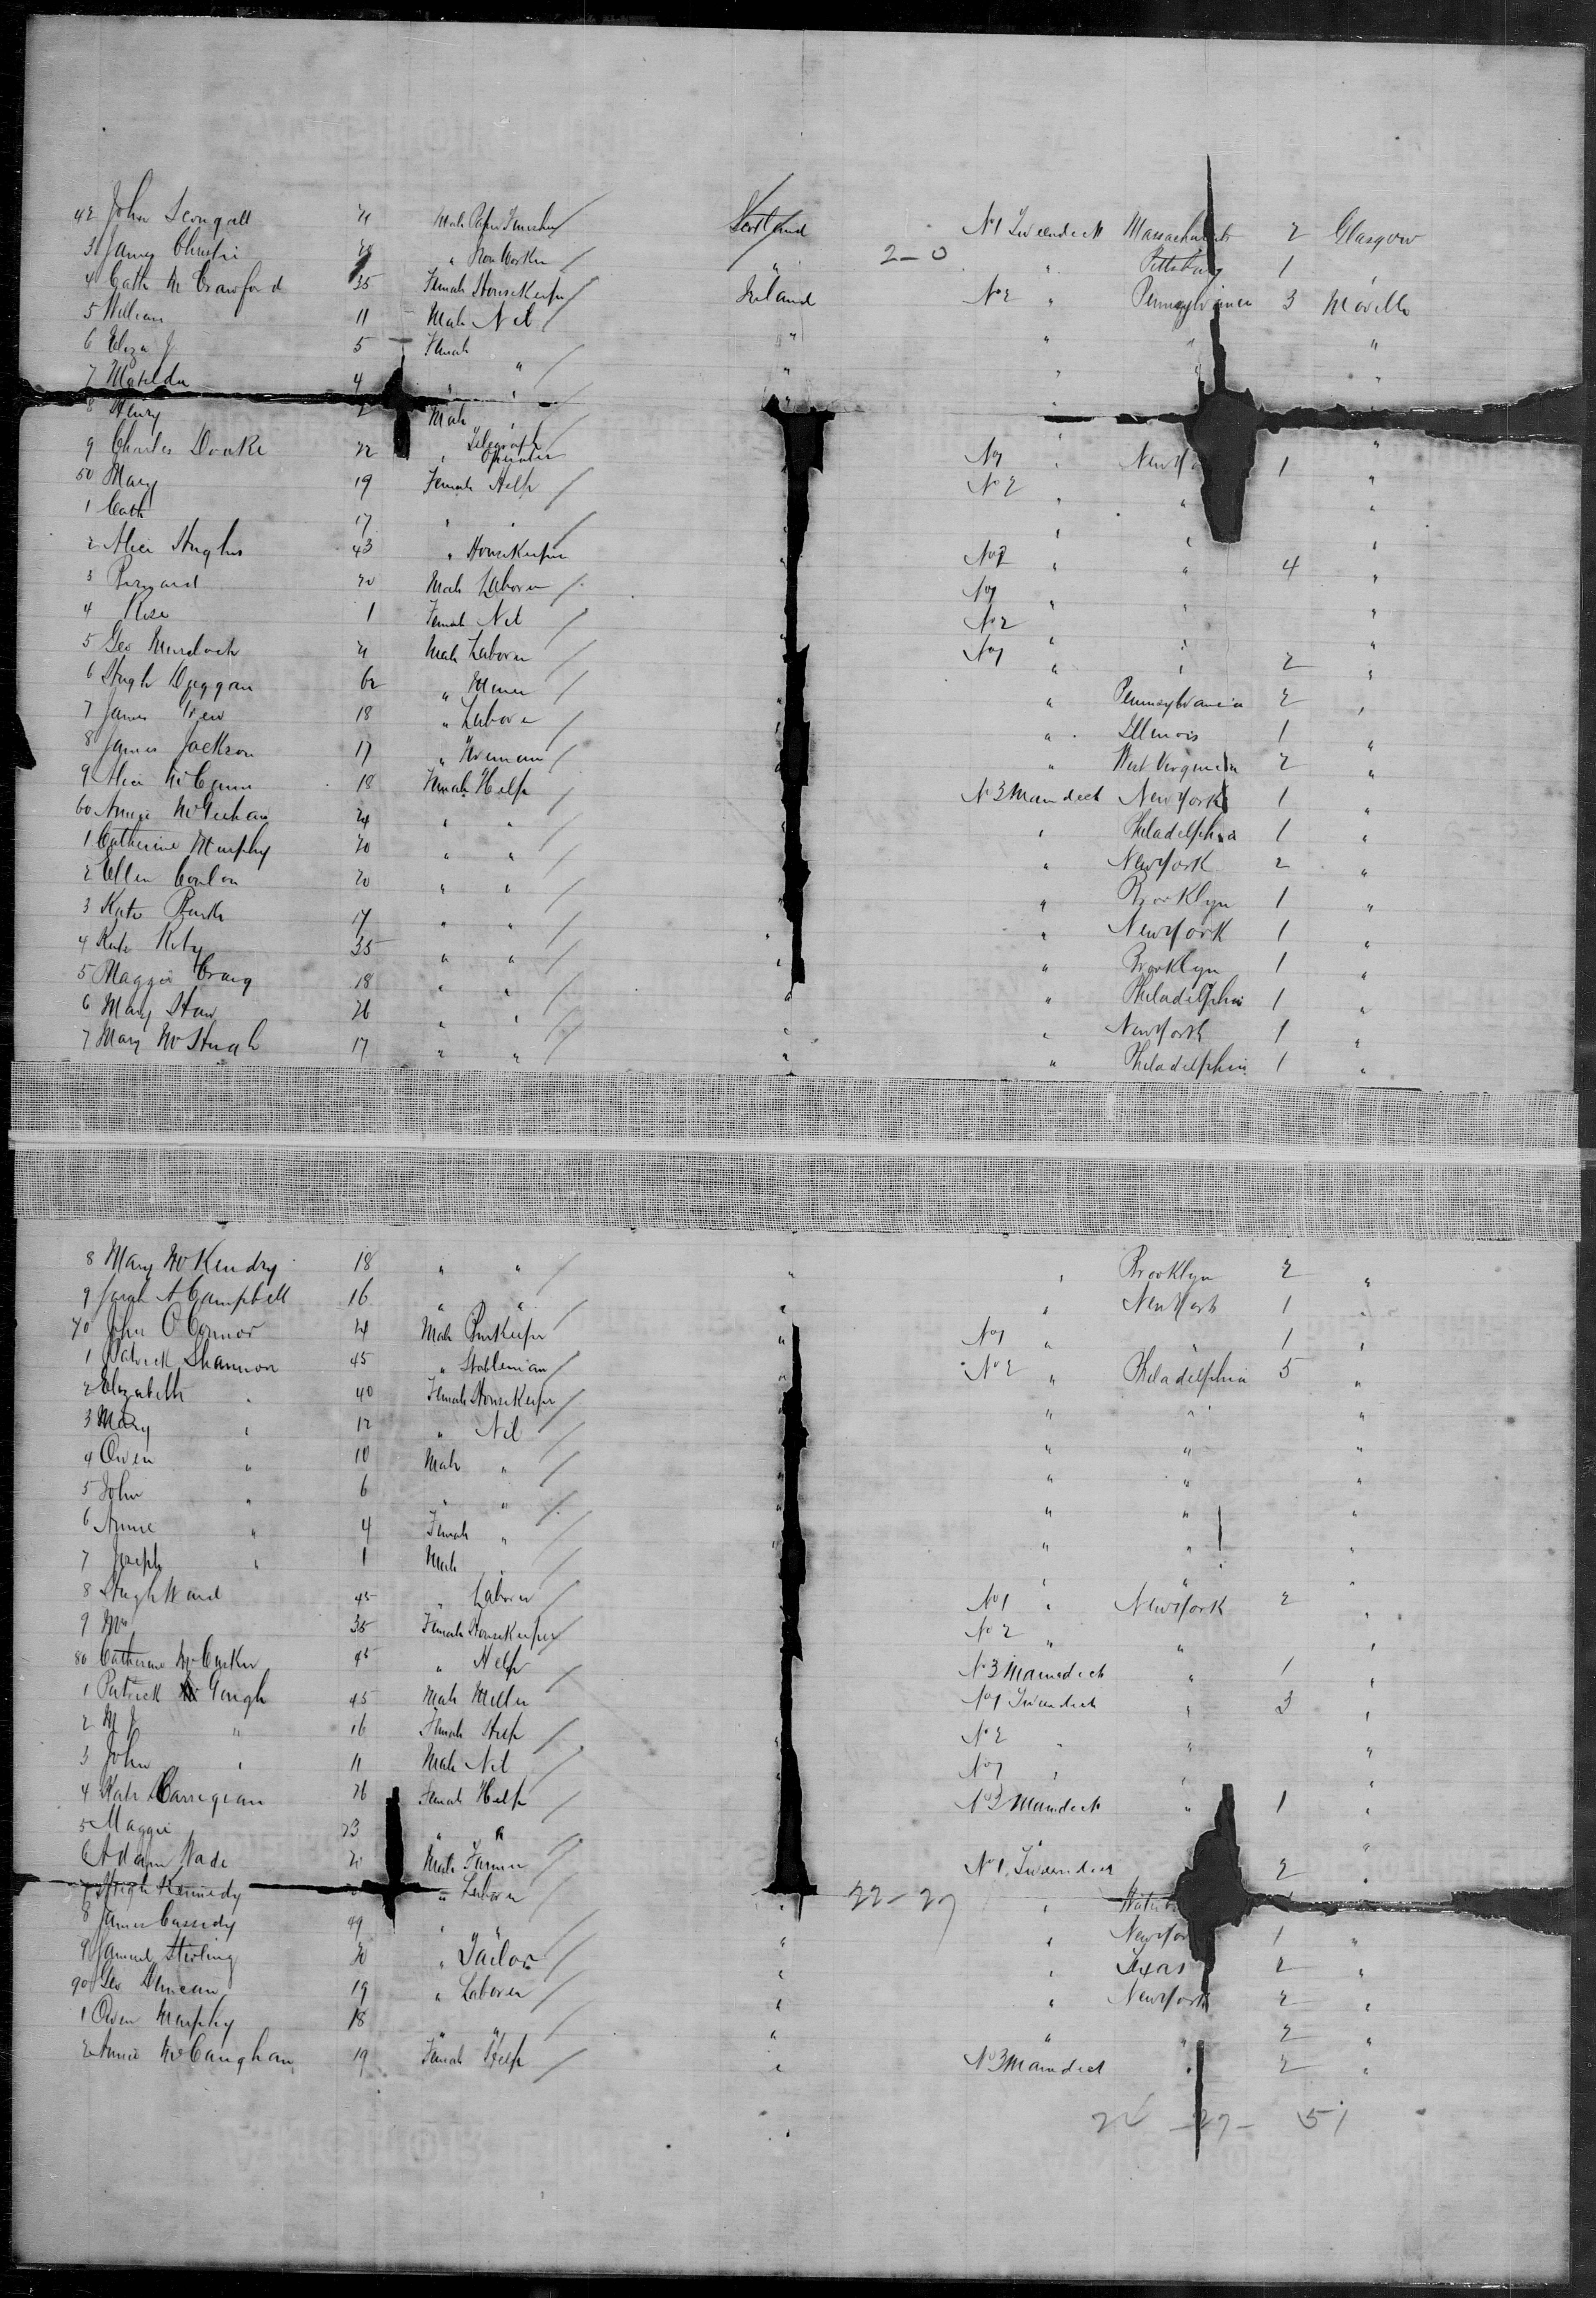 42 John Scongall 21 Male Paper Finisher Scotland No 1 Tweendeck Massachusets 2 Glasgow
3 James Christie " Iron Worker " 2-0 " Pittsburg 1 "
4 Cath McCrawford 35 Female HouseKeeper Ireland No 2 " Pennsylvania 3 Moville
5 William 11 Male Nil " " " "
6 Eliza J 5 Female " " " " "
7 Matilda 4 " " " " "
8 Henry Male " "
9 Charles Doake 22 " Telegraph Operator No 1 " New Yo 1 "
50 Mary 19 Female Help No 2 " " "
1 Cath 17 " " " " "
2 Alice Hughes 43 " HouseKeeper No 2 " " 4 "
3 Bernard 20 Male Laborer No 1 " " "
4 Rose 1 Female Nil No 2 " " "
5 Geo Murdoch 21 Male Laborer No 1 " " 2 "
6 Hugh Duggan 62 " Miner " Pennsylvania 2 "
7 James 18 " Laborer " Illinois 1 "
8 James Jackson 17 " " West Virginia 2 "
9 Alice McCann 18 Female Help No 3 Maindeck New York 1 "
60 Annie McGeehan 24 " " " Philadelphia 1 "
1 Catherine Murphy 20 " " " New York 2 "
2 Ellen Conlon 20 " " " Brooklyn 1 "
3 Kate Burk 17 " " " New York 1 "
4 Kate 35 " " " " Brooklyn 1 "
5 Maggie Craig 18 " " " " Philadelphia 1 "
6 Mary Haw 26 " " " " New York 1 "
7 Mary McHugh 17 " " " " Philadelphia 1 "
8 Mary McKendry 18 " " " " Brooklyn 2 "
9 Sarah A Campbell 16 " " " " New York 1 "
70 John O'Connor 24 Male BarKeeper " No 1 " " 1 "
1 Patrick Shannon 45 " Stableman No 2 " Philadelphia 5 "
2 Elizabeth " 40 Female HouseKeeper " " "
3 Mary " 12 " Nil " " "
4 Owen " 10 Male " " " "
5 John " 6 " " " " "
6 Annie " 4 Female " " " "
7 Joseph " 1 Male " " " "
8 Hugh Ward 45 " Laborer No 1 " New York 2 "
9 Mrs 35 Female HouseKeeper No 2 " " "
80 Catherine McCusker 45 " Help No 3 Maindeck " 1 "
1 Patrick Gough 45 Male Miller No 1 Tweendeck " 3 "
2 M J " 16 Female Help No 2 " " "
3 John " 11 Male Nil No 1 " " "
4 Kate Carrigian 26 Female Help No 3 Maindeck " 1 "
5 Maggie 23 " " " "
6 Adam Wade 20 Male Farmer No 1 Tweendeck 2 "
7 Hugh Kennedy " Laborer " 22-27 " Waterb
8 James Cassidy 49 " " " " New Yor 1 "
9 Samuel Stirling 20 " Tailor " " Texas 2 "
90 Geo Duncan 19 " Laborer " " New York 2 "
1 Owen Murphy 18 " " " " " 2 "
2 Annie McCaughan 19 Female Help " No 3 Maindeck " 2 "
- 27 - 51